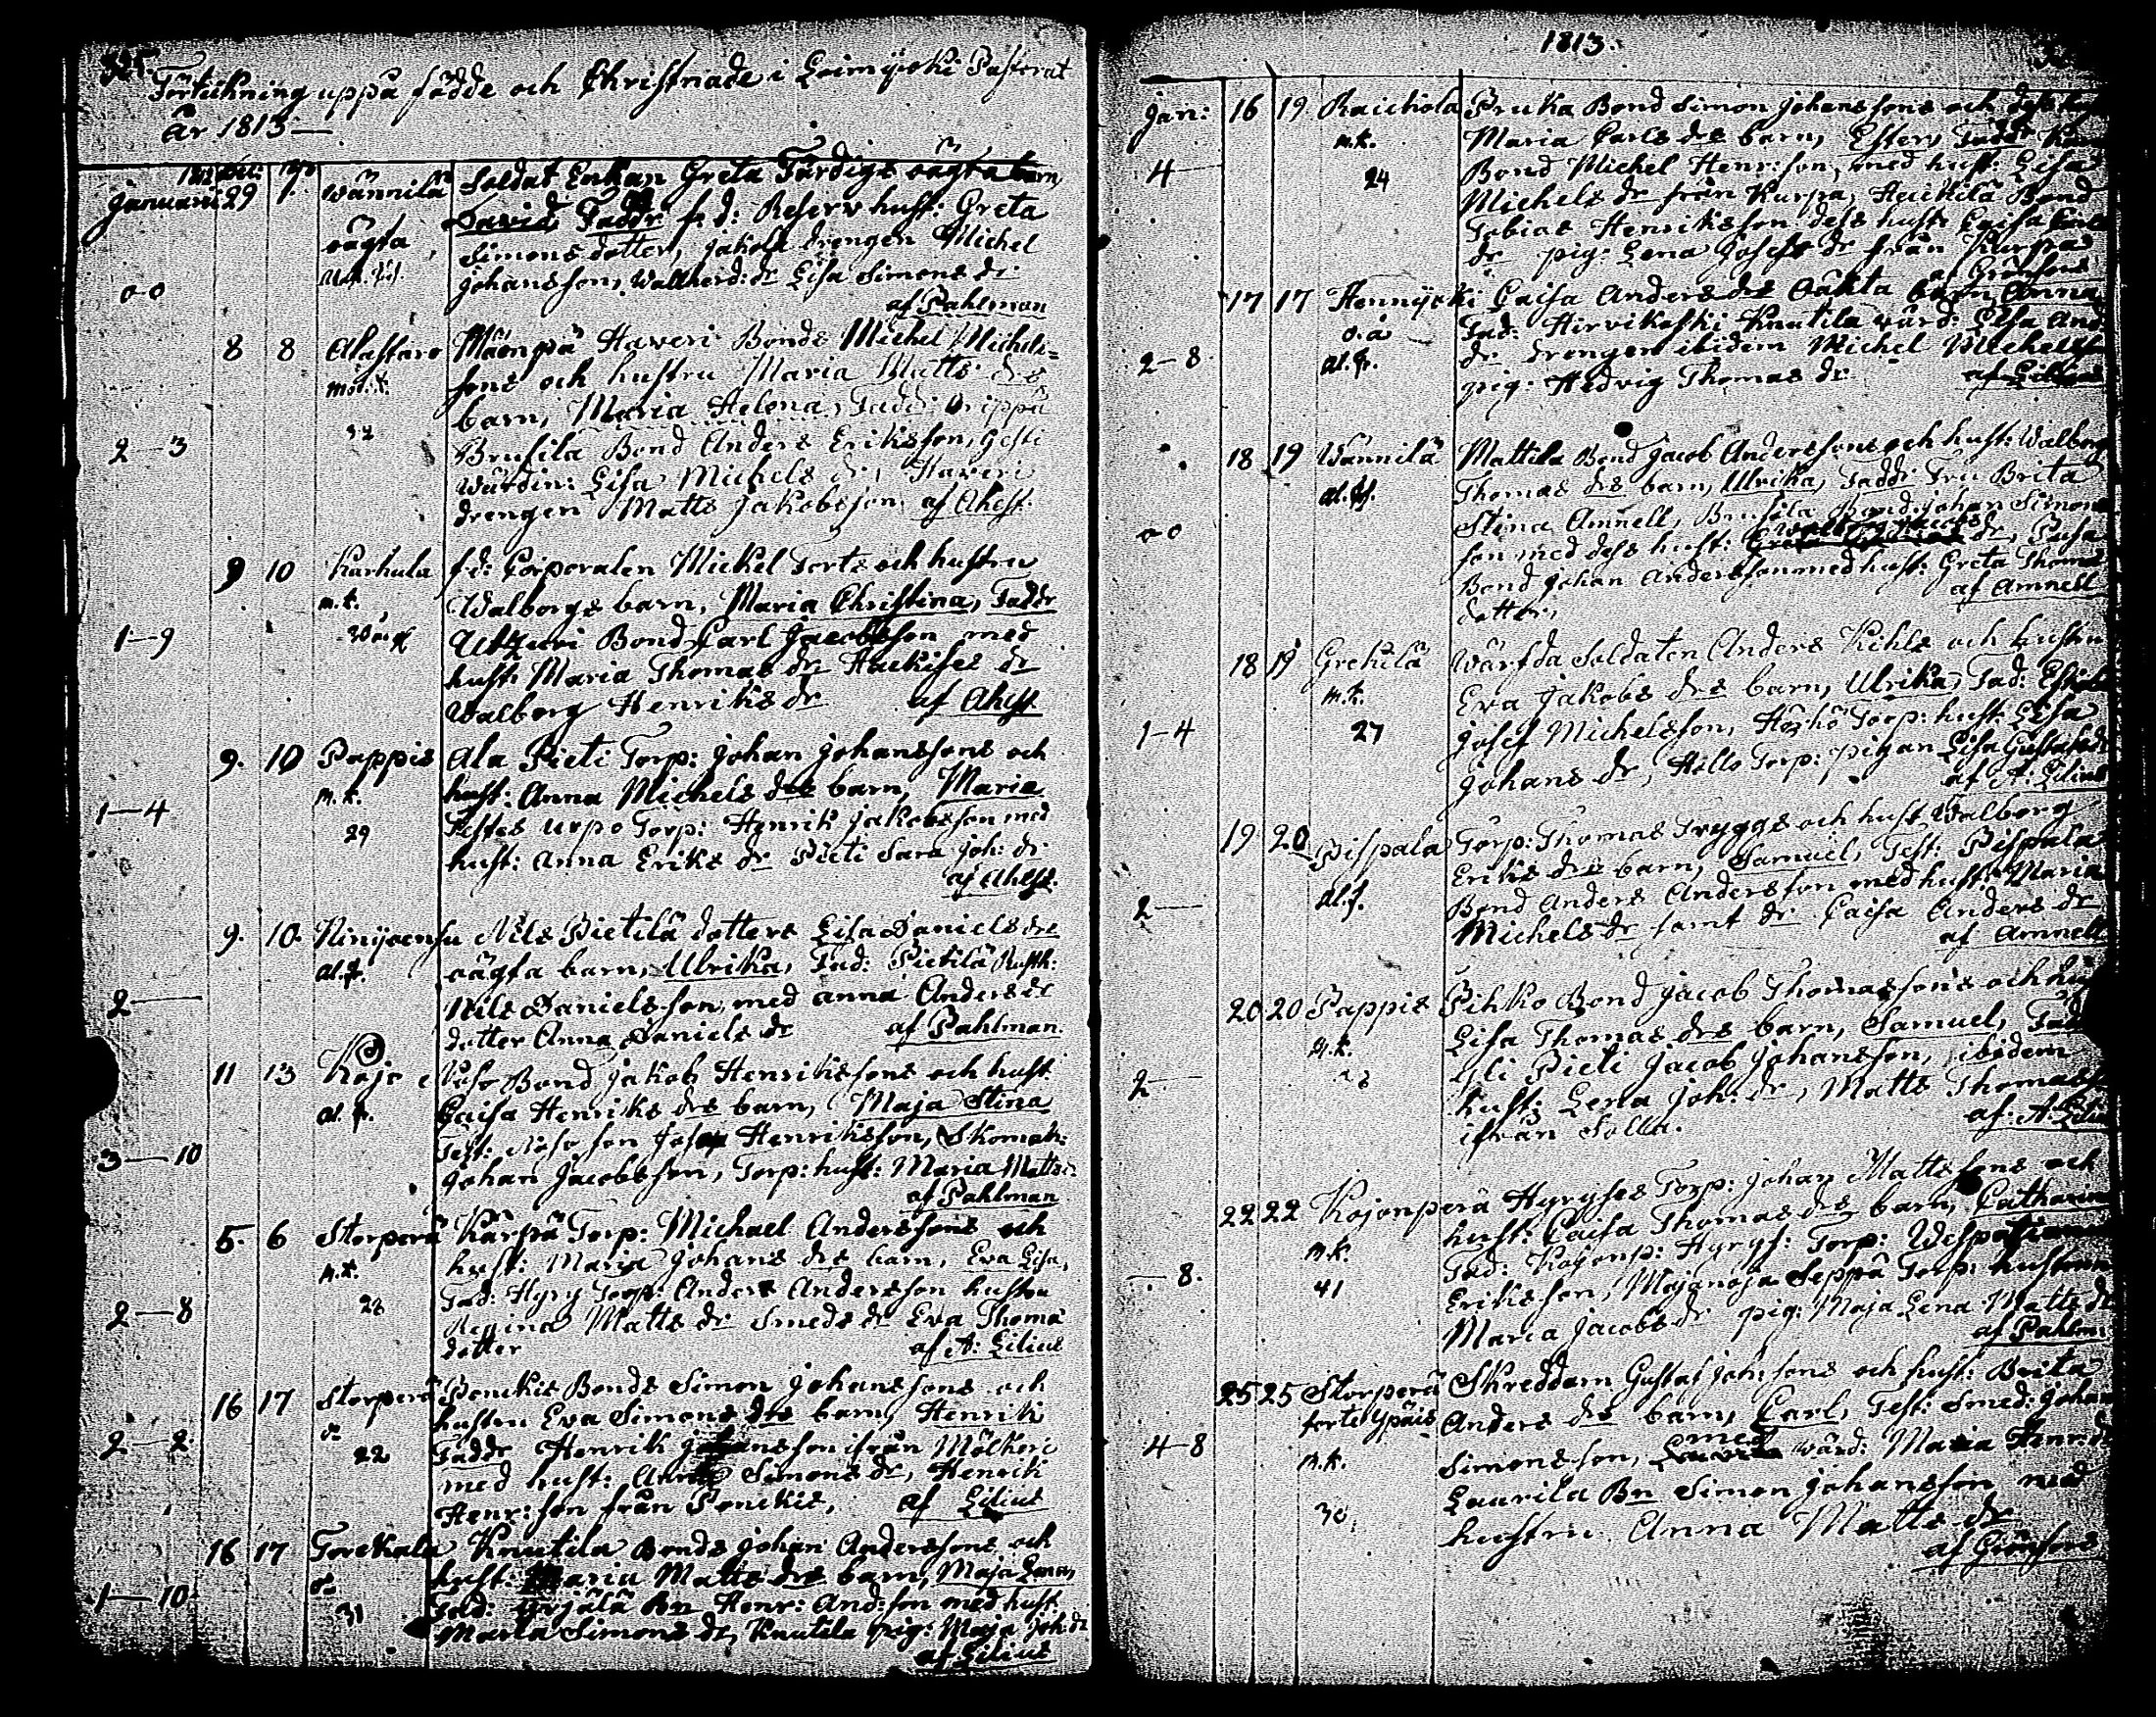 325.
Förtekning uppå födde och Christnade i Loimijoki Pastorat
År 1813 —
Januari 29 1. Wännilä Soldat Enkan Greta Färdigs oägta barn,
oägta David, Faddr f.d: Reserv hust: Greta
Simons dotter, Jakola drengen Michel
Johansson, Wallherd: dr Lisa Simons dr
0-0
af Pahlman
8 8 Alastaro Mäenpä Haveri Bonds Michel Michels=
sons och hustru Maria Matts drs
barn, Maria Helena, Fadd: Krippä
32
2-3
Brusila Bond Anders Eriksson, Gesti
Wärdin: Lisa Michels dr, Haveri
drengen Matts Jakobsson af Ahlst.
9 10 Karhula f.d: Corporalen Mickel Torts och hustru
m.k. Walborgs barn, Maria Christina, Faddr
1-9
Uttzuri Bond Carl Jacobsson med
hust: Maria Thomas dr Haekises dr
Walborg Henriks dr af Ahlst
9. 10 Pappis Ala Pieti Torp: Johan Johanssons och
m.k. hust: Anna Michels drs barn, Maria
1-4
29
Testes Urpo Torp: Henrik Jakobsson med
hust: Anna Eriks dr Pieti Sara Joh: dr
af Ahlst.
9. 10. Ninijoensu Nils Pietilä dotters Lisa Daniels drs
al.k. oägta barn, Ulrika, Fad: Pietilä Rusth:
2—
Nils Danielsson, med anna Anders dr
dotter Anna Daniels dr af Pahlman.
11 13 Kojo Nuso Bond Jakob Henrikssons och hust
al.k. Caisa Henriks drs barn, Maja Stina
3-10
Test: Nuso son Josef Henriksson, Skomak:
Johan Jacobsson, Torp: hust: Maria Matts dr
af Pahlman
5. 6 Storperä Kärpä Torp: Michael Anderssons och
m.k. hust: Maria Johans drs barn, Eva Lisa,
28
2-8
Fad: Hyry Torp: Anders Andersson hustru
Regina Matts dr Smeds dr Eva Thoma
dotter af A: Lilius
16 17 Storperä Penckis Bonds Simon Johanssons och
hustru Eva Simons drs barn, Henrik
2-2
22
Faddr Henrik Johansson ifrån Mälkeri
med hust: Anna Simons dr, Henrik
Henr: son från Penckis, af Lilius
16 17 Torekala Knutila Bonds Johan Anderssons och
hust: Maria Matts drs barn, Maja Lena,
1-10
31
Fad: Yrjälä Bn Henr: And: son med hust
Maria Simons dr, Knutila pig: Maja Joh: dr
af Lilius
1813.
Jan: 16 19 Raickola Pruka Bond Simon Johanssons och dess
m.k. Maria Carls drs barn, Ester, Faddr
4—
24
Bond Michel Henr: son, med hust: Lisa
Michels dr från Kurpa, Heickilä Bond
Tobias Henriksson dess hust: Caisa
dr pig: Lena Josefs dr från Kurpa
af Grönfors
17 17 Hennijoki Caisa Anders drs Oäkta barn Anna
o.ä Fad: Hirvikoski Knutila wärd: Lisa And:
2-8
al.k. dr drengen ibidem Michel Michelss
pig: Hedvig Thomas dr af Lilius
18 19 Wännilä Mattila Bond Jacob Anderssons och hust: Walborg
Thomas drs barn, Ulrika, Fadd: Fru Brita
0-0
Stina Amnell, Brusila Bond Johan Simons
son med dess hust: Walborg Jacobs dr, Puso
Bond Johan Andersson med hust: Greta Thomas
dotter, af Amnell
18 19 Grekilä Wärfda Soldaten Anders Kihls och hustru
m.k. Eva Jakobs drs barn, Ulrika, Fad:
1-4
27
Josef Michelsson, Hörkö Torp: hust: Lisa
Johans dr, Hollo Torp: pigan Lisa Gustafs dr
af A: Lilius
19 20 Pispala Torp: Thomas Tryggs och hust Walborg
al.k. Eriks drs barn, Samuel, Test: Pispala
2—
Bond Anders Andersson med hust: Maria
Michels dr samt dr Caisa Anders dr
af Amnell
20 20 Pappis Pihko Bond Jacob Thomassons och
m.k. Lisa Thomas drs barn, Samuel, Fad
28
2—
Yli Pieti Jacob Johansson, ibidem
hust: Lena Joh: dr, Matts Thomass
ifrån Solla. af: A: Lilius
22 22 Kojonperä Hyryses Torp: Johan Mattssons och
m.k. hust: Caisa Thomas drs barn, Catharina
—8.
41
Fad: Kojonp: Hyrys: Torp:
Eriksson, Majanoja Seppä Torp: hustrun
Maria Jacobs dr pig: Maja Lena Matts dr
af Pahlm:
25 25 Storperä Skreddarn Gustaf Joh: sons och hust: Brita
Anders drs barn, Carl, Test: Smed: Johan
4-8
m.k. Simonsson, med wärd: Maria Henr: dr
Laurila Bn Simon Johansson med
hustru Anna Matts dr
af Grönfors